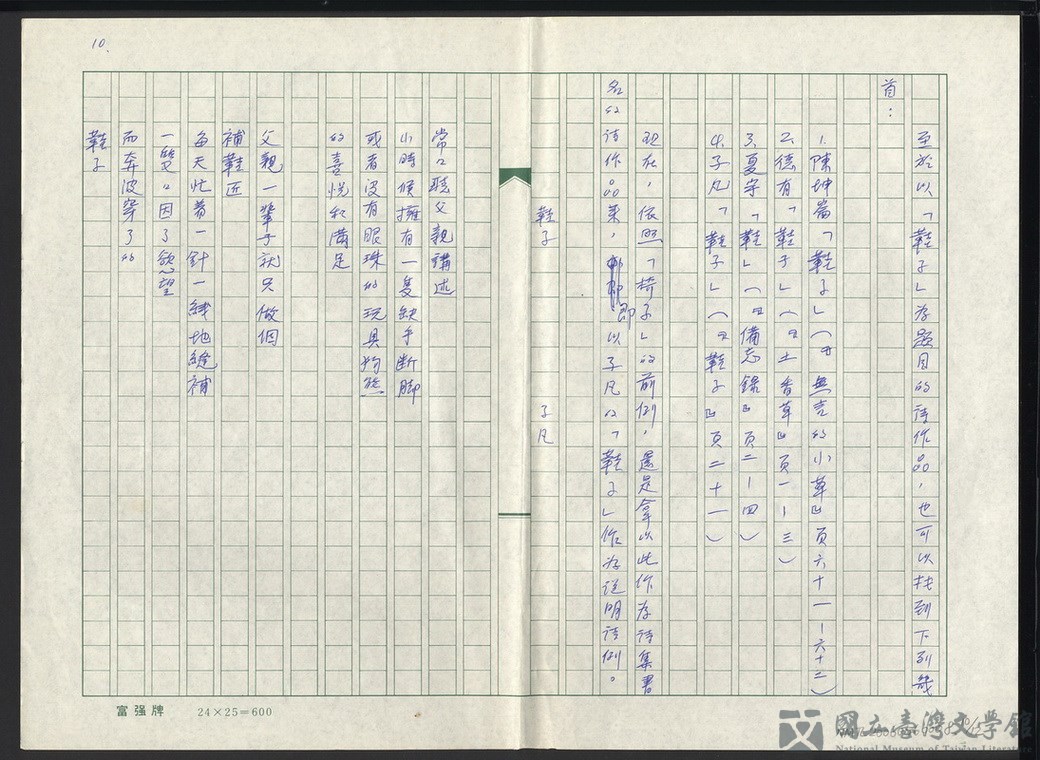 10.
至於以「鞋子」為題目的詩作品，也可以找到下列幾
首：
1.陳坤崙「鞋子」（『無言的小草』頁六十一－六十二）
2.德有「鞋子」（『土香草』頁一－三）
3.夏宇「鞋」（『備忘錄』頁二－四）
4.子凡「鞋子」（『鞋子』頁二十一）
現在，依照「椅子」的前例，還是拿以此作為詩集書
名的詩作品來，即以子凡的「鞋子」作為說明詩例。
鞋子 子凡
常常聽父親講述
小時候擁有一隻缺手斷脚
或者沒有眼珠的玩具狗熊
的喜悅和滿足
父親一輩子就只做個
補鞋匠
每天忙著一針一綫地縫補
一雙雙因了慾望
而奔波穿了的
鞋子
富强牌 24×25=600
國立臺灣文學館
National Museum of Taiwan Literature